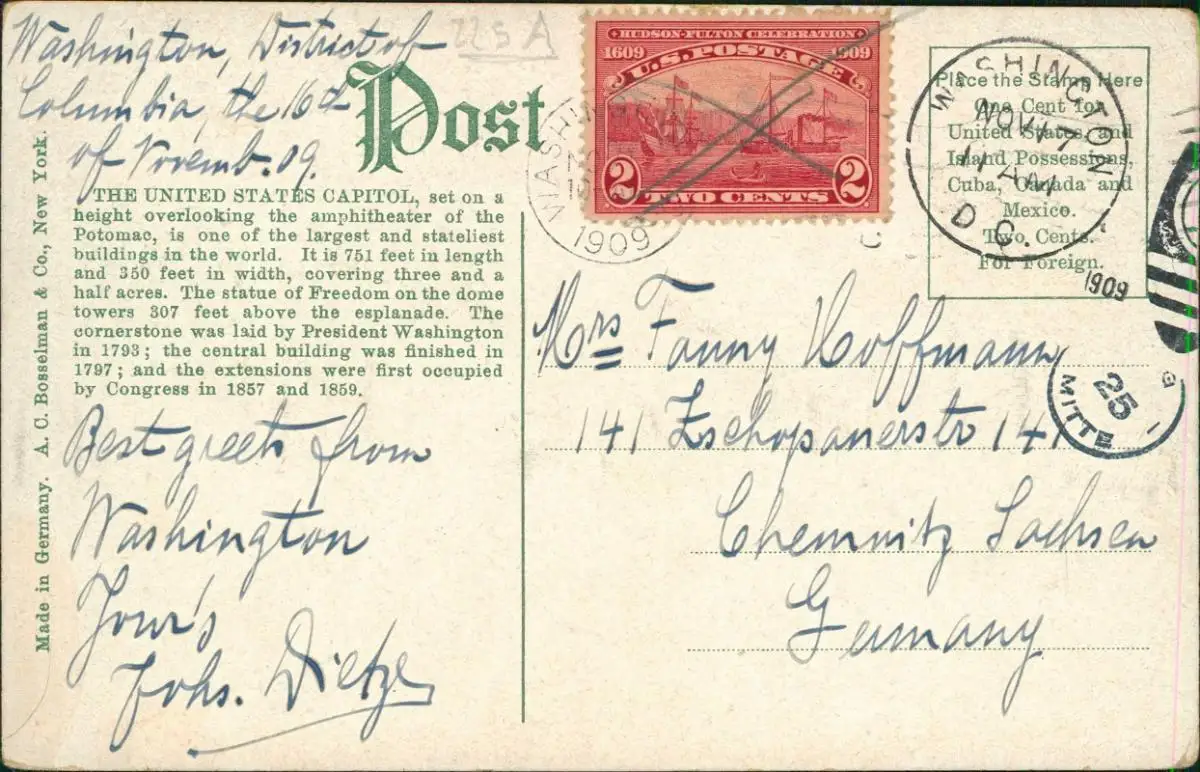 Washington, District of
Columbia, the 16d
of Novemb. 09.
225A
Post
THE UNITED STATES CAPITOL, set on a
height overlooking the amphitheater of the
Potomac, is one of the largest and stateliest
buildings in the world. It is 751 feet in length
and 350 feet in width, covering three and a
half acres. The statue of Freedom on the dome
towers 307 feet above the esplanade. The
cornerstone was laid by President Washington
in 1793; the central building was finished in
1797; and the extensions were first occupied
by Congress in 1857 and 1859.
Best greets from
Washington
Your's
Johs. Dietze
Made in Germany. A. C. Bosselman & Co., New York.
HUDSON-FULTON CELEBRATION
1609 1909
U.S. POSTAGE
2 TWO CENTS 2
WASHIN
1909
WASHINGTON
NOV 17
11 AM
D. C.
1909
Place the Stamp Here
One Cent for
United States, and
Island Possessions,
Cuba, Canada and
Mexico.
Two Cents.
For Foreign.
Mrs Fanny Hoffmann
141 Zschopauerstr 141
Chemnitz Sachsen
Germany
25
MITTE